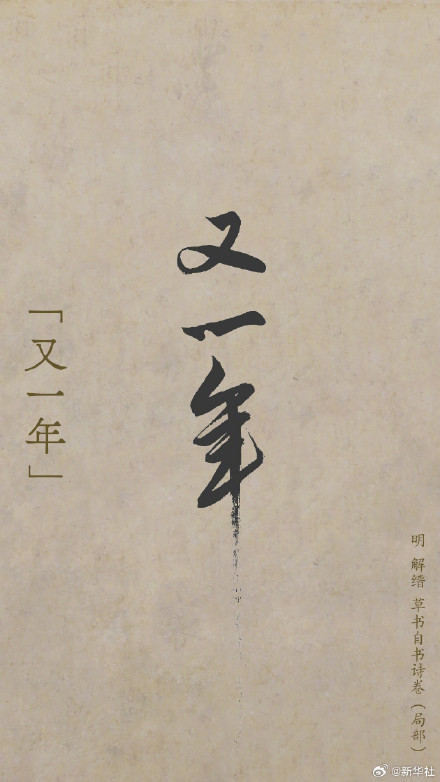 又一年
「又一年」
明 解缙 草书自书诗卷（局部）
@新华社